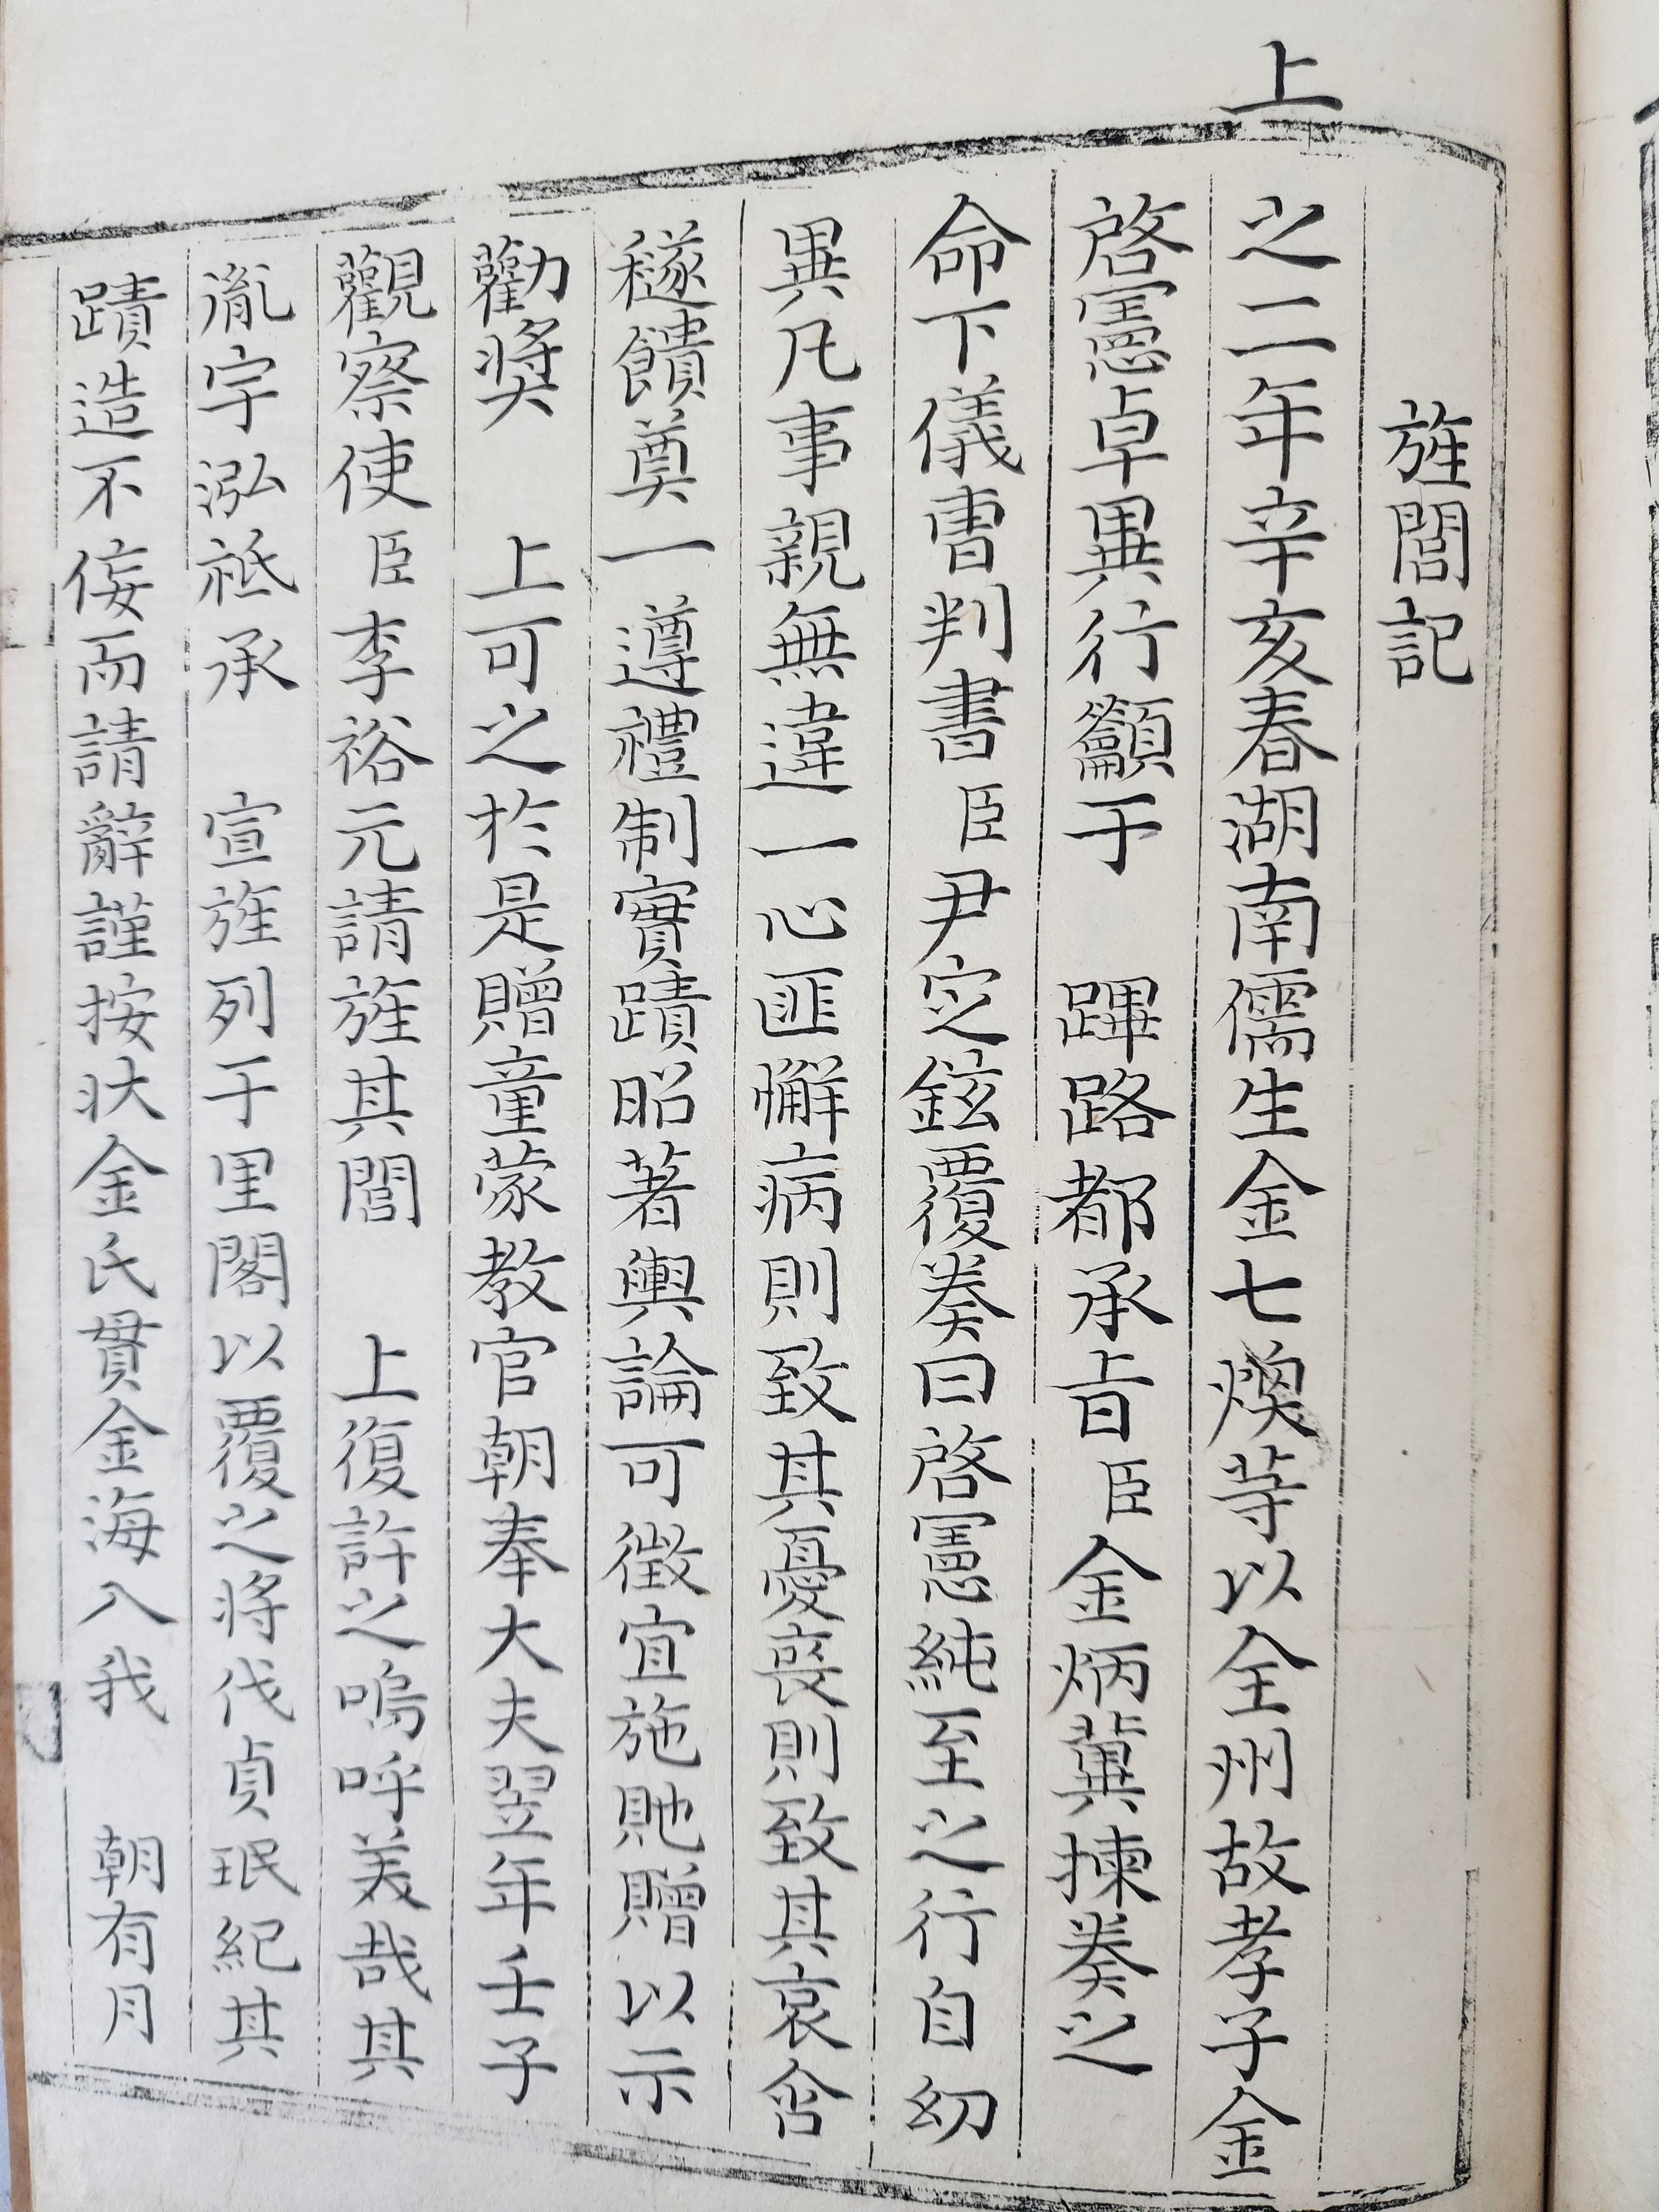 旌閭記
上之二年辛亥春湖南儒生金七煥等以全州故孝子金
啓憲卓異行籲于 蹕路都承旨臣金炳冀揀奏之
命下儀曹判書臣尹定鉉覆奏曰啓憲純至之行自幼
異凡事親無違一心匪懈病則致其憂喪則致其哀含
襚饋奠一遵禮制實蹟昭著輿論可徵宜施貤贈以示
勸奬 上可之於是贈童蒙教官朝奉大夫翌年壬子
觀察使臣李裕元請旌其閭 上復許之嗚呼美哉其
胤宇泓祗承 宣旌列于里閣以覆之將伐貞珉紀其
蹟造不佞而請辭謹按狀金氏貫金海入我 朝有月